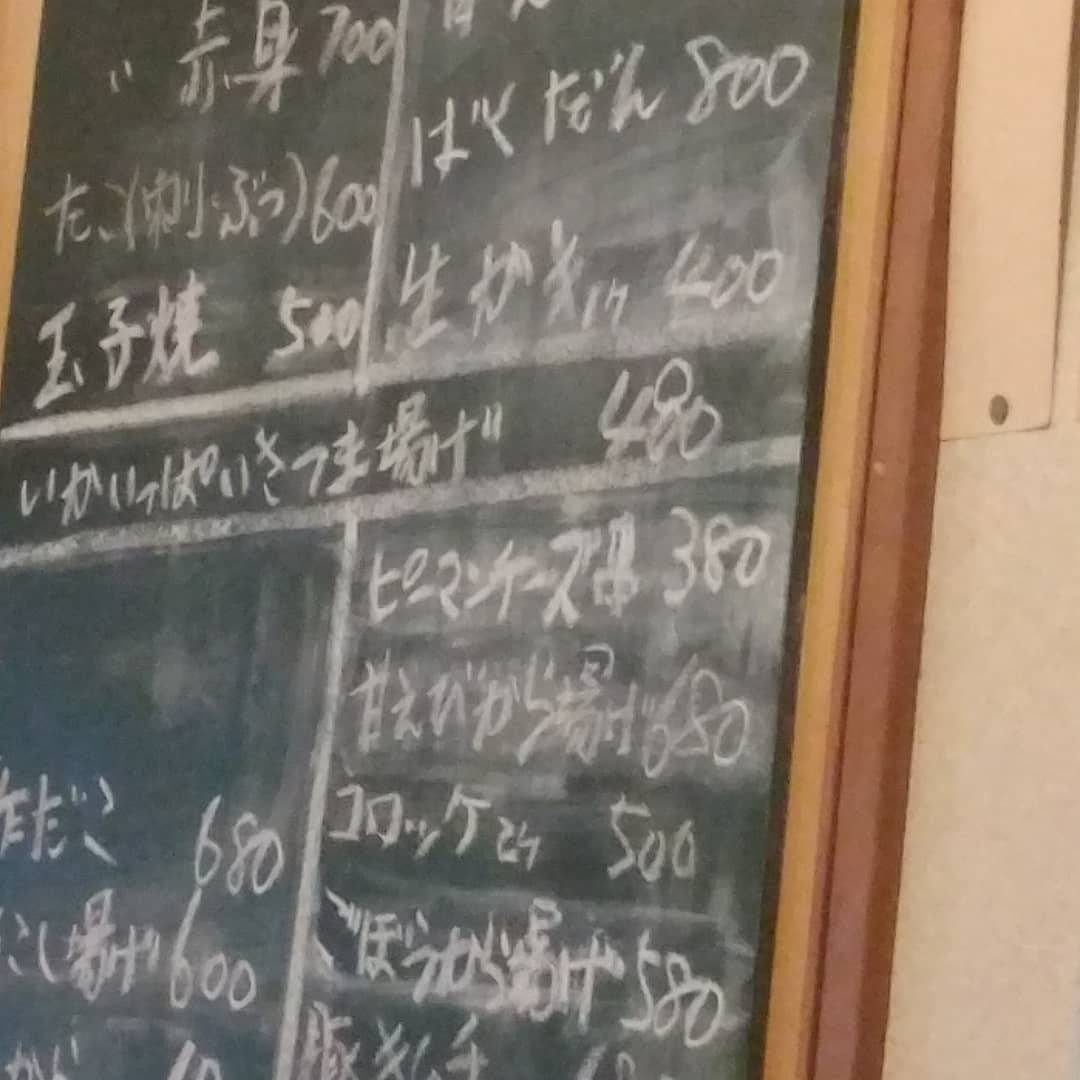 〃 赤身 700
たこ(刺・ぶつ) 600
玉子焼 500
ばくだん 800
生がき1ケ 400
いかいっぱいさつま揚げ 480
だこ 680
し揚げ 600
ピーマンチーズ串 380
甘えびから揚げ 680
コロッケ2ケ 500
ごぼうから揚げ 580
豚キムチ